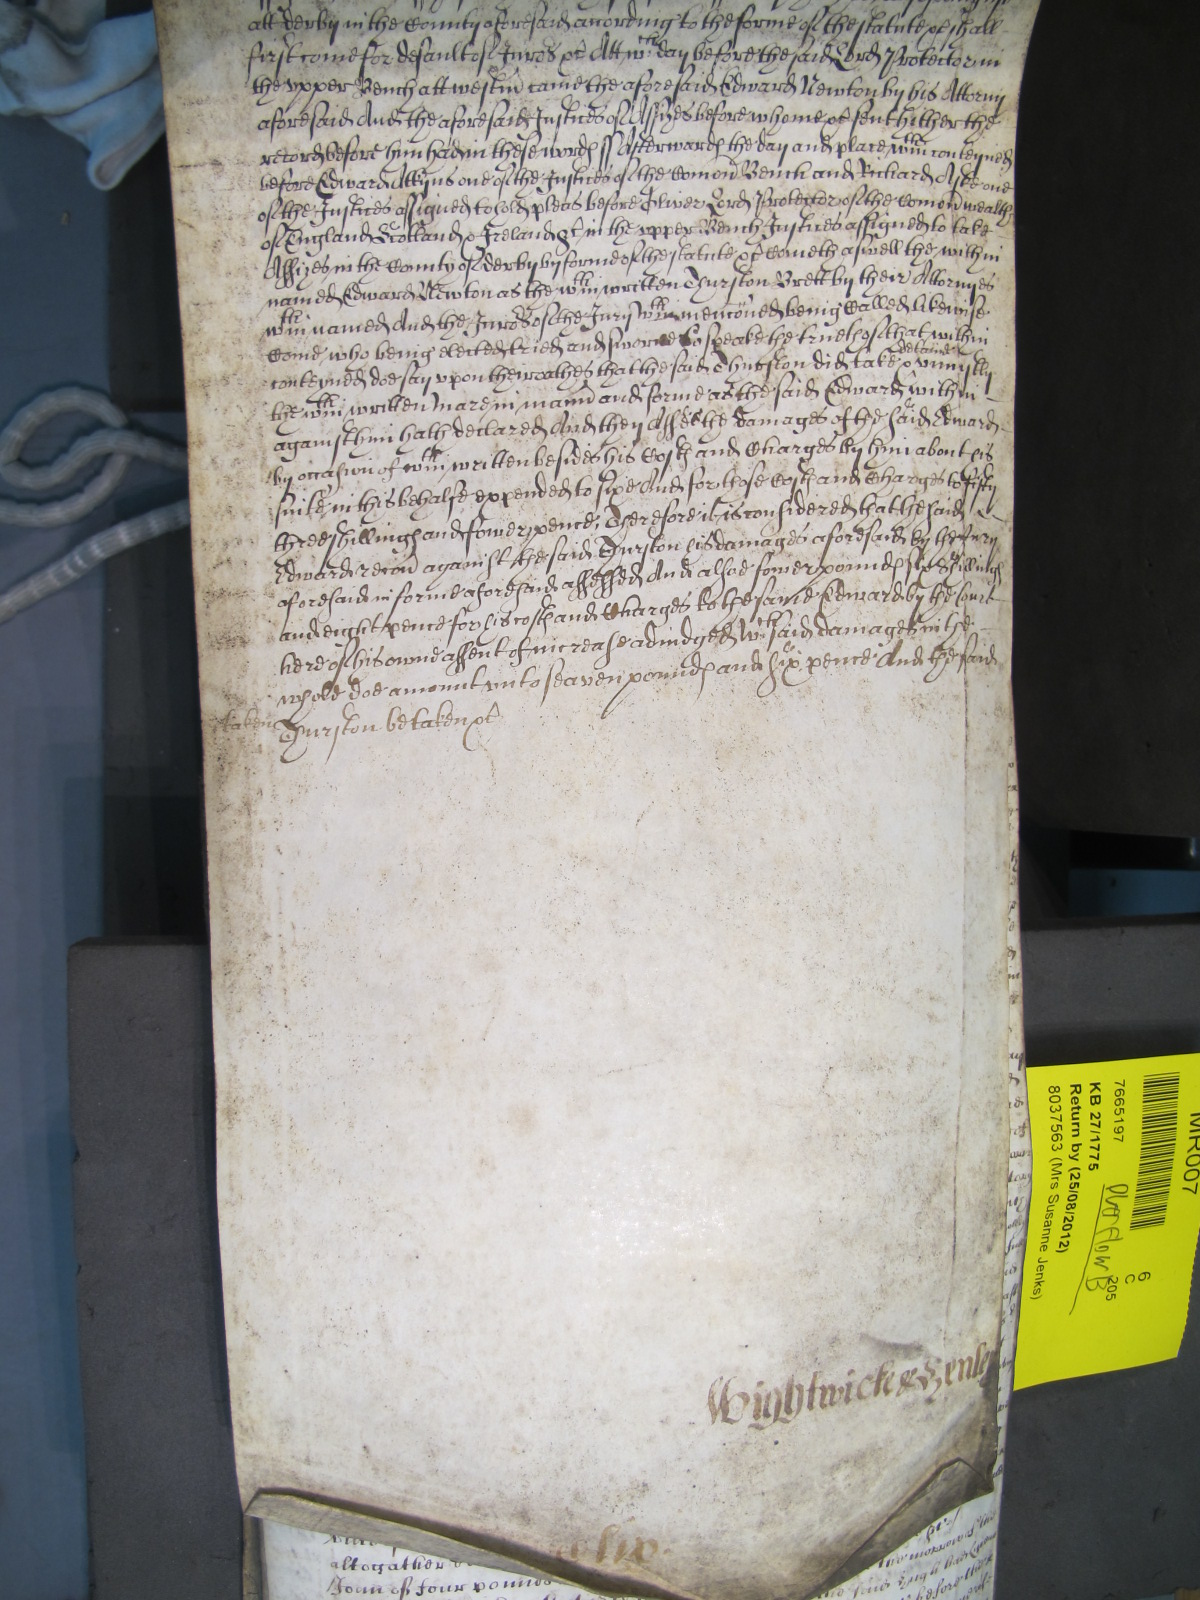 att Derby in the County aforesaid according to the forme of the statute &c shall
first come for default of Juro͛s &c Att wch day before the said Lord Protector in
the vpper Bench att westm̄ came the aforesaid Edward Newton by his Attorny
aforesaid And the aforesaid Justices of Assizes before whome &c sent hither the
record before him had in these words ss Afterwards the day and place wthin conteyned
before Edward Atkyns one of the Justices of the Com̄on Bench and Richard Aske one
of the Justices assigned to hold pleas before Oliver Lord Protector of the Com̄on wealth
of England Scotland & Ireland &c in the vpper Bench Justices assigned to take
Assizes in the County of Derby by forme of the statute &c Cometh aswell the within
named Edward Newton as the wthin written Thurston Brett by their Attornyes
wthin named And the Juro͛s of the Jury wthin menc̄oned being called likewise
Come who being elected tried and sworne to speake the trueth of that within
conteyned doe say vpon their oathes that the said Thurston did take & detaine vniustly
the wthin written Mare in mann̄ and forme as the said Edward within
against him hath declared And they Assesse the damages of the said Edward
by occasion of wthin written besides his Costs and Charges by him about his
suite in this behalfe expended to sixe And for those Costs and Charges to fifty
three shillings and fower pence, Therefore it is considered that the said
Edward recou͛ against the said Thurston his damages aforesaid by the Jury
aforesaid in forme aforesaid assessed And alsoe fower pounds six shillings
and eight pence for his costs and Charges to the same Edward by the Court
here of his owne assent of increase adiudged wch said damages in the
whole doe amount vnto seaven pounds and six pence And the said
taken
Thurston be taken &c
Wightwicke &
altogather
Sum of four pounds
MR007
7665197
KB 27/1775
Return by (25/08/2012)
8037563 (Mrs Susanne Jenks)
Overflow B
6
C
205